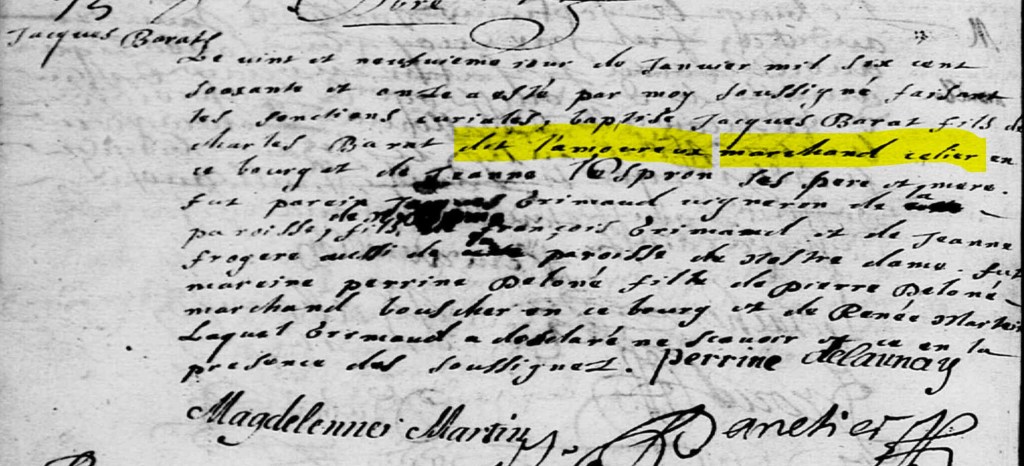 Jacques Barath
Le vint et neufvieme jour de Janvier mil six cent
soixante et onze a esté par moy soussigné faisant
les fonctions curiales, baptisé Jacques Barat fils de
charles Barat dit l'amoureux marchand celier en
ce bourg et de Jeanne l'Espron ses pere et mere.
fut parein Grimaud vigneron de la
paroisse, fils françois Grimaud et de Jeanne
frogere aussi de la paroisse de Nostre dame. fut
mareine perrine Deloné fille de pierre Deloné
marchand bouscher en ce bourg et de Renée Martin
Laquel Grimaud a desclaré ne scavoir et ce en la
presence des soussignez. perrine delaunay
Magdelennei Martin Panetier